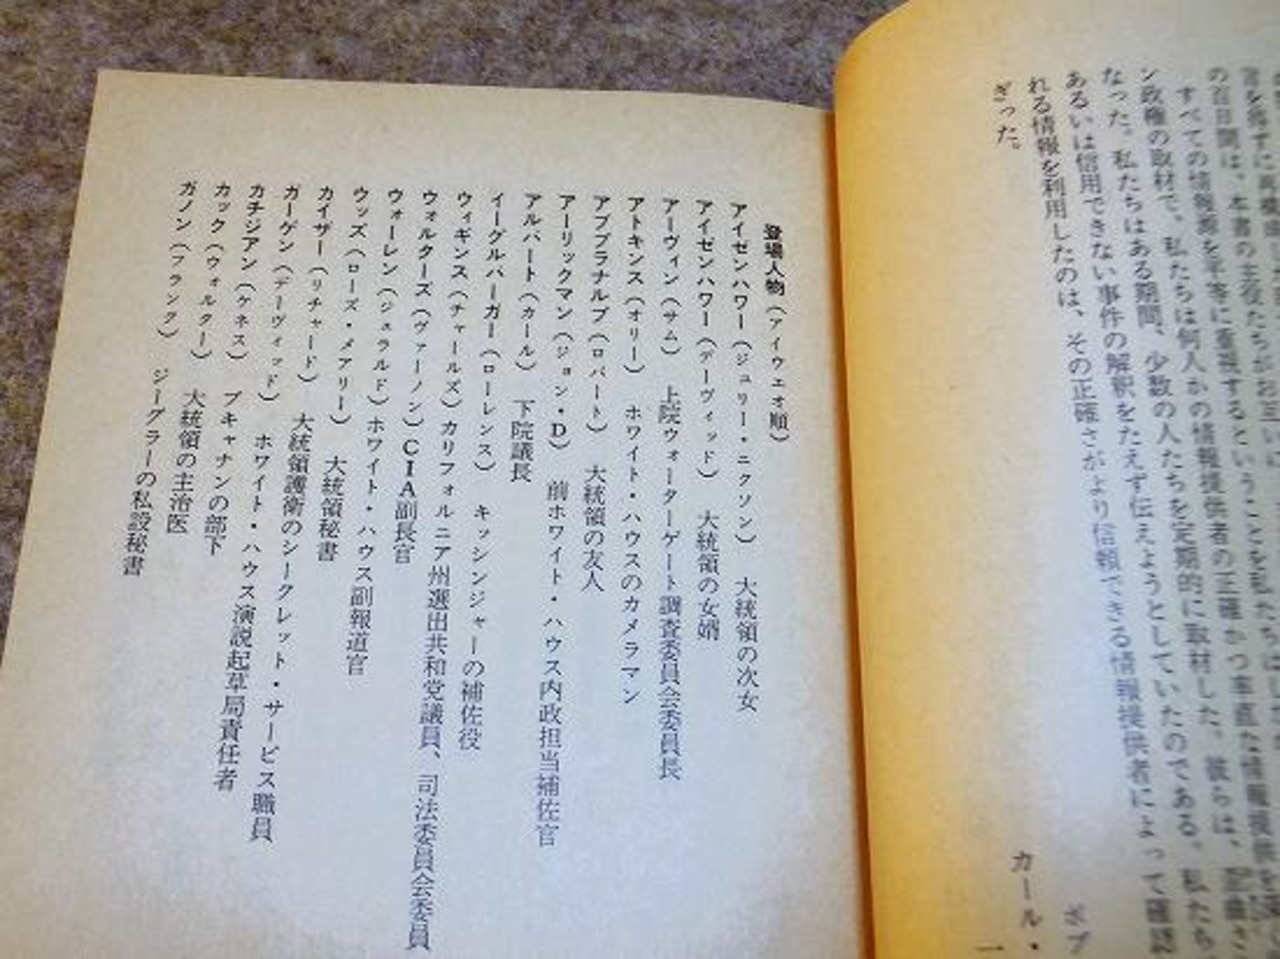 の百日間は、本書の主役たちがお互いに
すべての情報源を平等に重視するということを私たちはしな
ン政権の取材で、私たちは何人かの情報提供者の正確かつ率直な情報提供を
なった。私たちはある期間、少数の人たちを定期的に取材した。彼らは、歪曲さ
あるいは信用できない事件の解釈をたえず伝えようとしていたのである。私たち
れる情報を利用したのは、その正確さがより信頼できる情報提供者によって確認
ぎった。
ボブ
カール・
一
登場人物（アイウエオ順）
アイゼンハワー（ジュリー・ニクソン）　大統領の次女
アイゼンハワー（デーヴィッド）　大統領の女婿
アーヴィン（サム）　上院ウォーターゲート調査委員会委員長
アトキンス（オリー）　ホワイト・ハウスのカメラマン
アブプラナルプ（ロバート）　大統領の友人
アーリックマン（ジョン・D）　前ホワイト・ハウス内政担当補佐官
アルバート（カール）　下院議長
イーグルバーガー（ローレンス）　キッシンジャーの補佐役
ウィギンス（チャールズ）カリフォルニア州選出共和党議員、司法委員会委員
ウォルターズ（ヴァーノン）CIA副長官
ウォーレン（ジェラルド）ホワイト・ハウス副報道官
ウッズ（ローズ・メアリー）　大統領秘書
カイザー（リチャード）　大統領護衛のシークレット・サービス職員
ガーゲン（デーヴィッド）　ホワイト・ハウス演説起草局責任者
カチジアン（ケネス）　ブキャナンの部下
カック（ウォルター）　大統領の主治医
ガノン（フランク）　ジーグラーの私設秘書